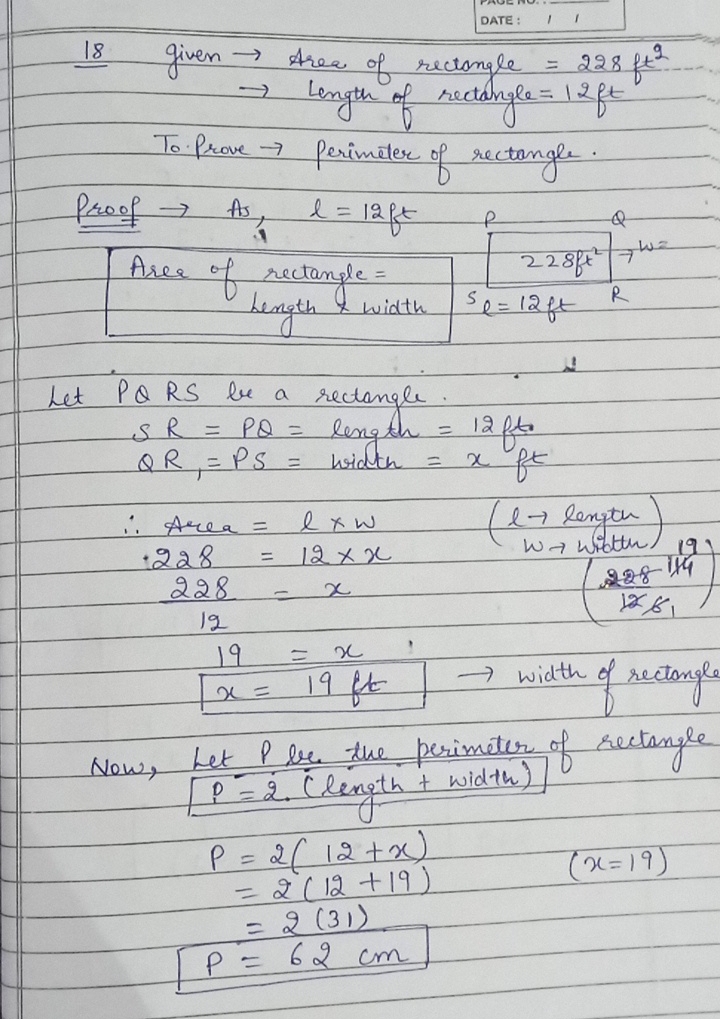 PAGE NO.:
DATE: / /
18 given → Area of rectangle = 228 ft²
→ Length of rectangle = 12ft
To Prove → Perimeter of rectangle.
Proof → As, l = 12ft
P Q
Area of rectangle =
Length × width
228ft² → w=
S l = 12ft R
Let PQRS be a rectangle.
SR = PQ = length = 12 ft
QR = PS = width = x ft
∴ Area = l × w (l → length
w → width)
228 = 12 × x
228/12 = x
(228 114 19
12 6 1)
19 = x
x = 19 ft → width of rectangle
Now, Let P be the perimeter of rectangle
P = 2. (length + width)
P = 2( 12 + x) (x=19)
= 2 (12 + 19)
= 2 (31)
P = 62 cm